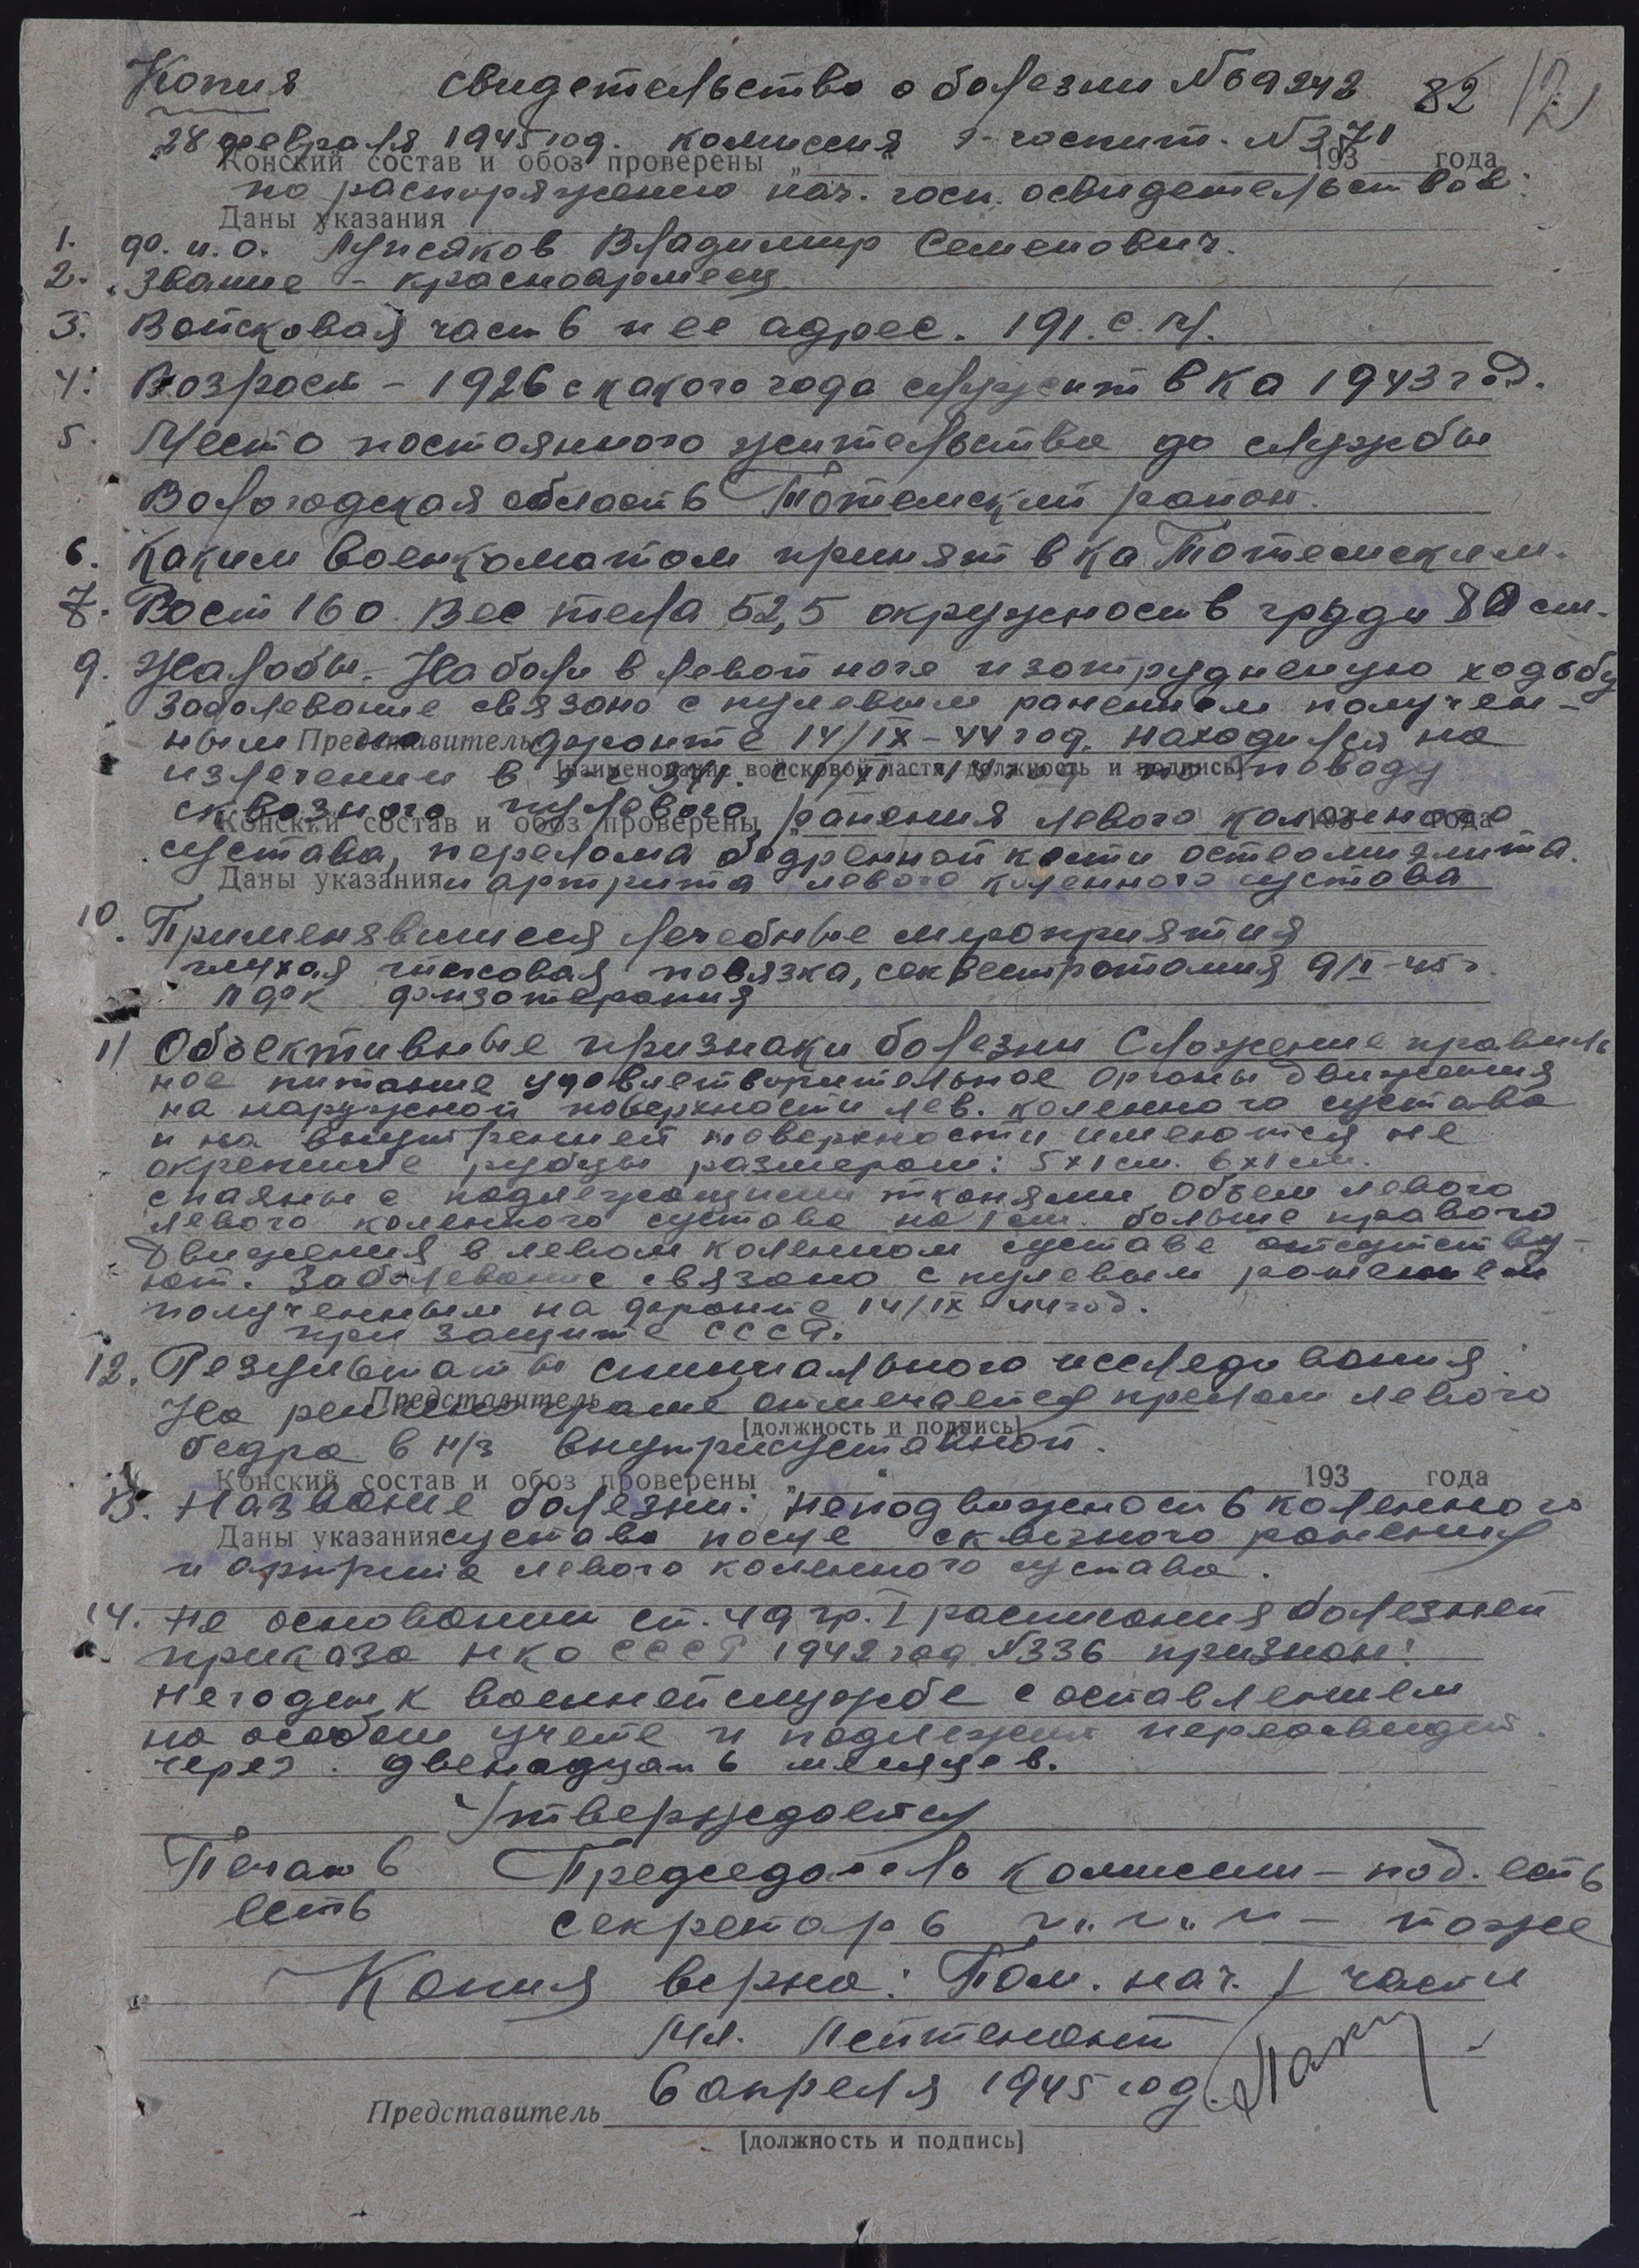 Копия свидетельство о болезни № 69242 82
28 февраля 1945 год. комиссия э-госпит. № 371
Конский состав и обоз проверены 193 года
по распоряжению нач. госп. освидетельствов:
Даны указания
1. ф. и. о. Владимир Семенович.
2. Звание - красноармеец
3. Войсковая часть и ее адрес. 191. с. п.
4. Возраст - 1926 с какого года служит в ка 1943 год.
5. Место постоянного жительства до службы
Вологодская область Тотемский район.
6. Каким военкоматом принят в ка Тотемским.
7. Рост 160. Вес тела 52,5 окружность груди 80 см.
9. Жалобы. На боли в левой ноге и затрудненую ходьбу
Заболевание связано с пулевым ранением получен-
ным на фронте 14/IX-44 год. находился на
Представитель
излечении в эг 371. с поводу
[наименование войсковой части, должность и подпись]
сквозного пулевого ранения левого коленного
Конский состав и обоз проверены 193 года
сустава, перелома бедренной кости остеомиэлита.
Даны указания и артрита левого коленного сустава
10. Применявшиеся лечебные мероприятия
глухая гипсовая повязка, секвестротомия 9/I-45 г.
лфк физотерапия
11 Объективные признаки болезни Сложение правиль
ное питание удовлетворительное Органы движения
на наружной поверхности лев. коленного сустава
и на внутренней поверхности имеются не
окрепшие рубцы размером: 5х1 см. 6х1 см.
спаяны с подлежащими тканями Объем левого
левого коленного сустава на 1 см. больше правого
Движения в левом коленном суставе отсутству-
ют. Заболевание связано с пулевым ранением
полученным на фронте 14/IX-44 год.
при защите СССР.
12. Результаты специального исследования:
На отмечается прелом левого
Представитель
бедра в н/з внутрисуставной.
[должность и подпись]
Конский состав и обоз проверены 193 года
13. Название болезни: неподвижность коленного
Даны указания сустава после сквозного ранения
и артрита левого коленного сустава.
14. На основании ст. 49 гр. I расписания болезней
приказа нко СССР 1942 год № 336 признан:
Негоден к военной службе с оставлением
на особом учете и подлежит переосвидет.
через двенадцать месяцев.
Утверждается
Печать Председатель комиссии - под. есть
есть секретарь "." - тоже
Копия верна: Пом. нач. I части
Мл. Лейтенант
6 апреля 1945 год.
Представитель
[должность и подпись]